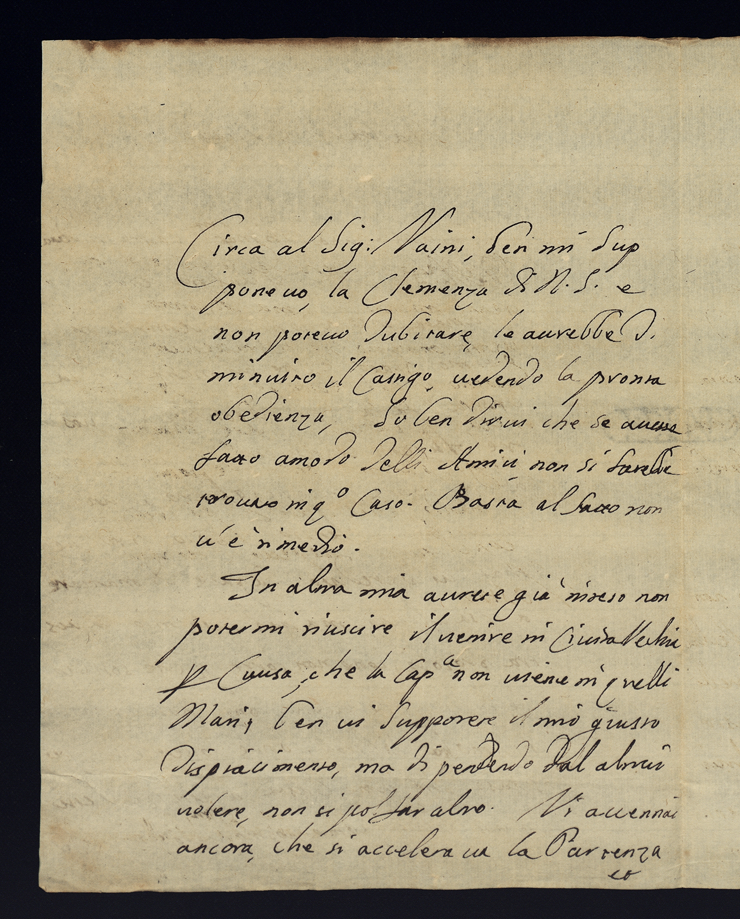 Circa al Sig: Vaini, ben mi sup
poneuo, la Clemenza di N. S. e
non poteuo dubitare, le aurebbe di
minuito il Castigo, uedendo la pronta
obedienza, So ben dirui che se auesse
fatto amodo delli Amici non si sarebbe
trouato in qo Caso. Basta al fatto non
u'è rimedio.
In altra mia aurete già inteso non
potermi riuscire il uenire in Ciuita Vechia
p Causa, che la Capa non uiene in quelli
Mari; ben ui supporete il mio giusto
dispiacimento, ma dipendendo dal altrui
uolere, non si pol far altro. Vi accennai
ancora, che si acceleraua la Partenza